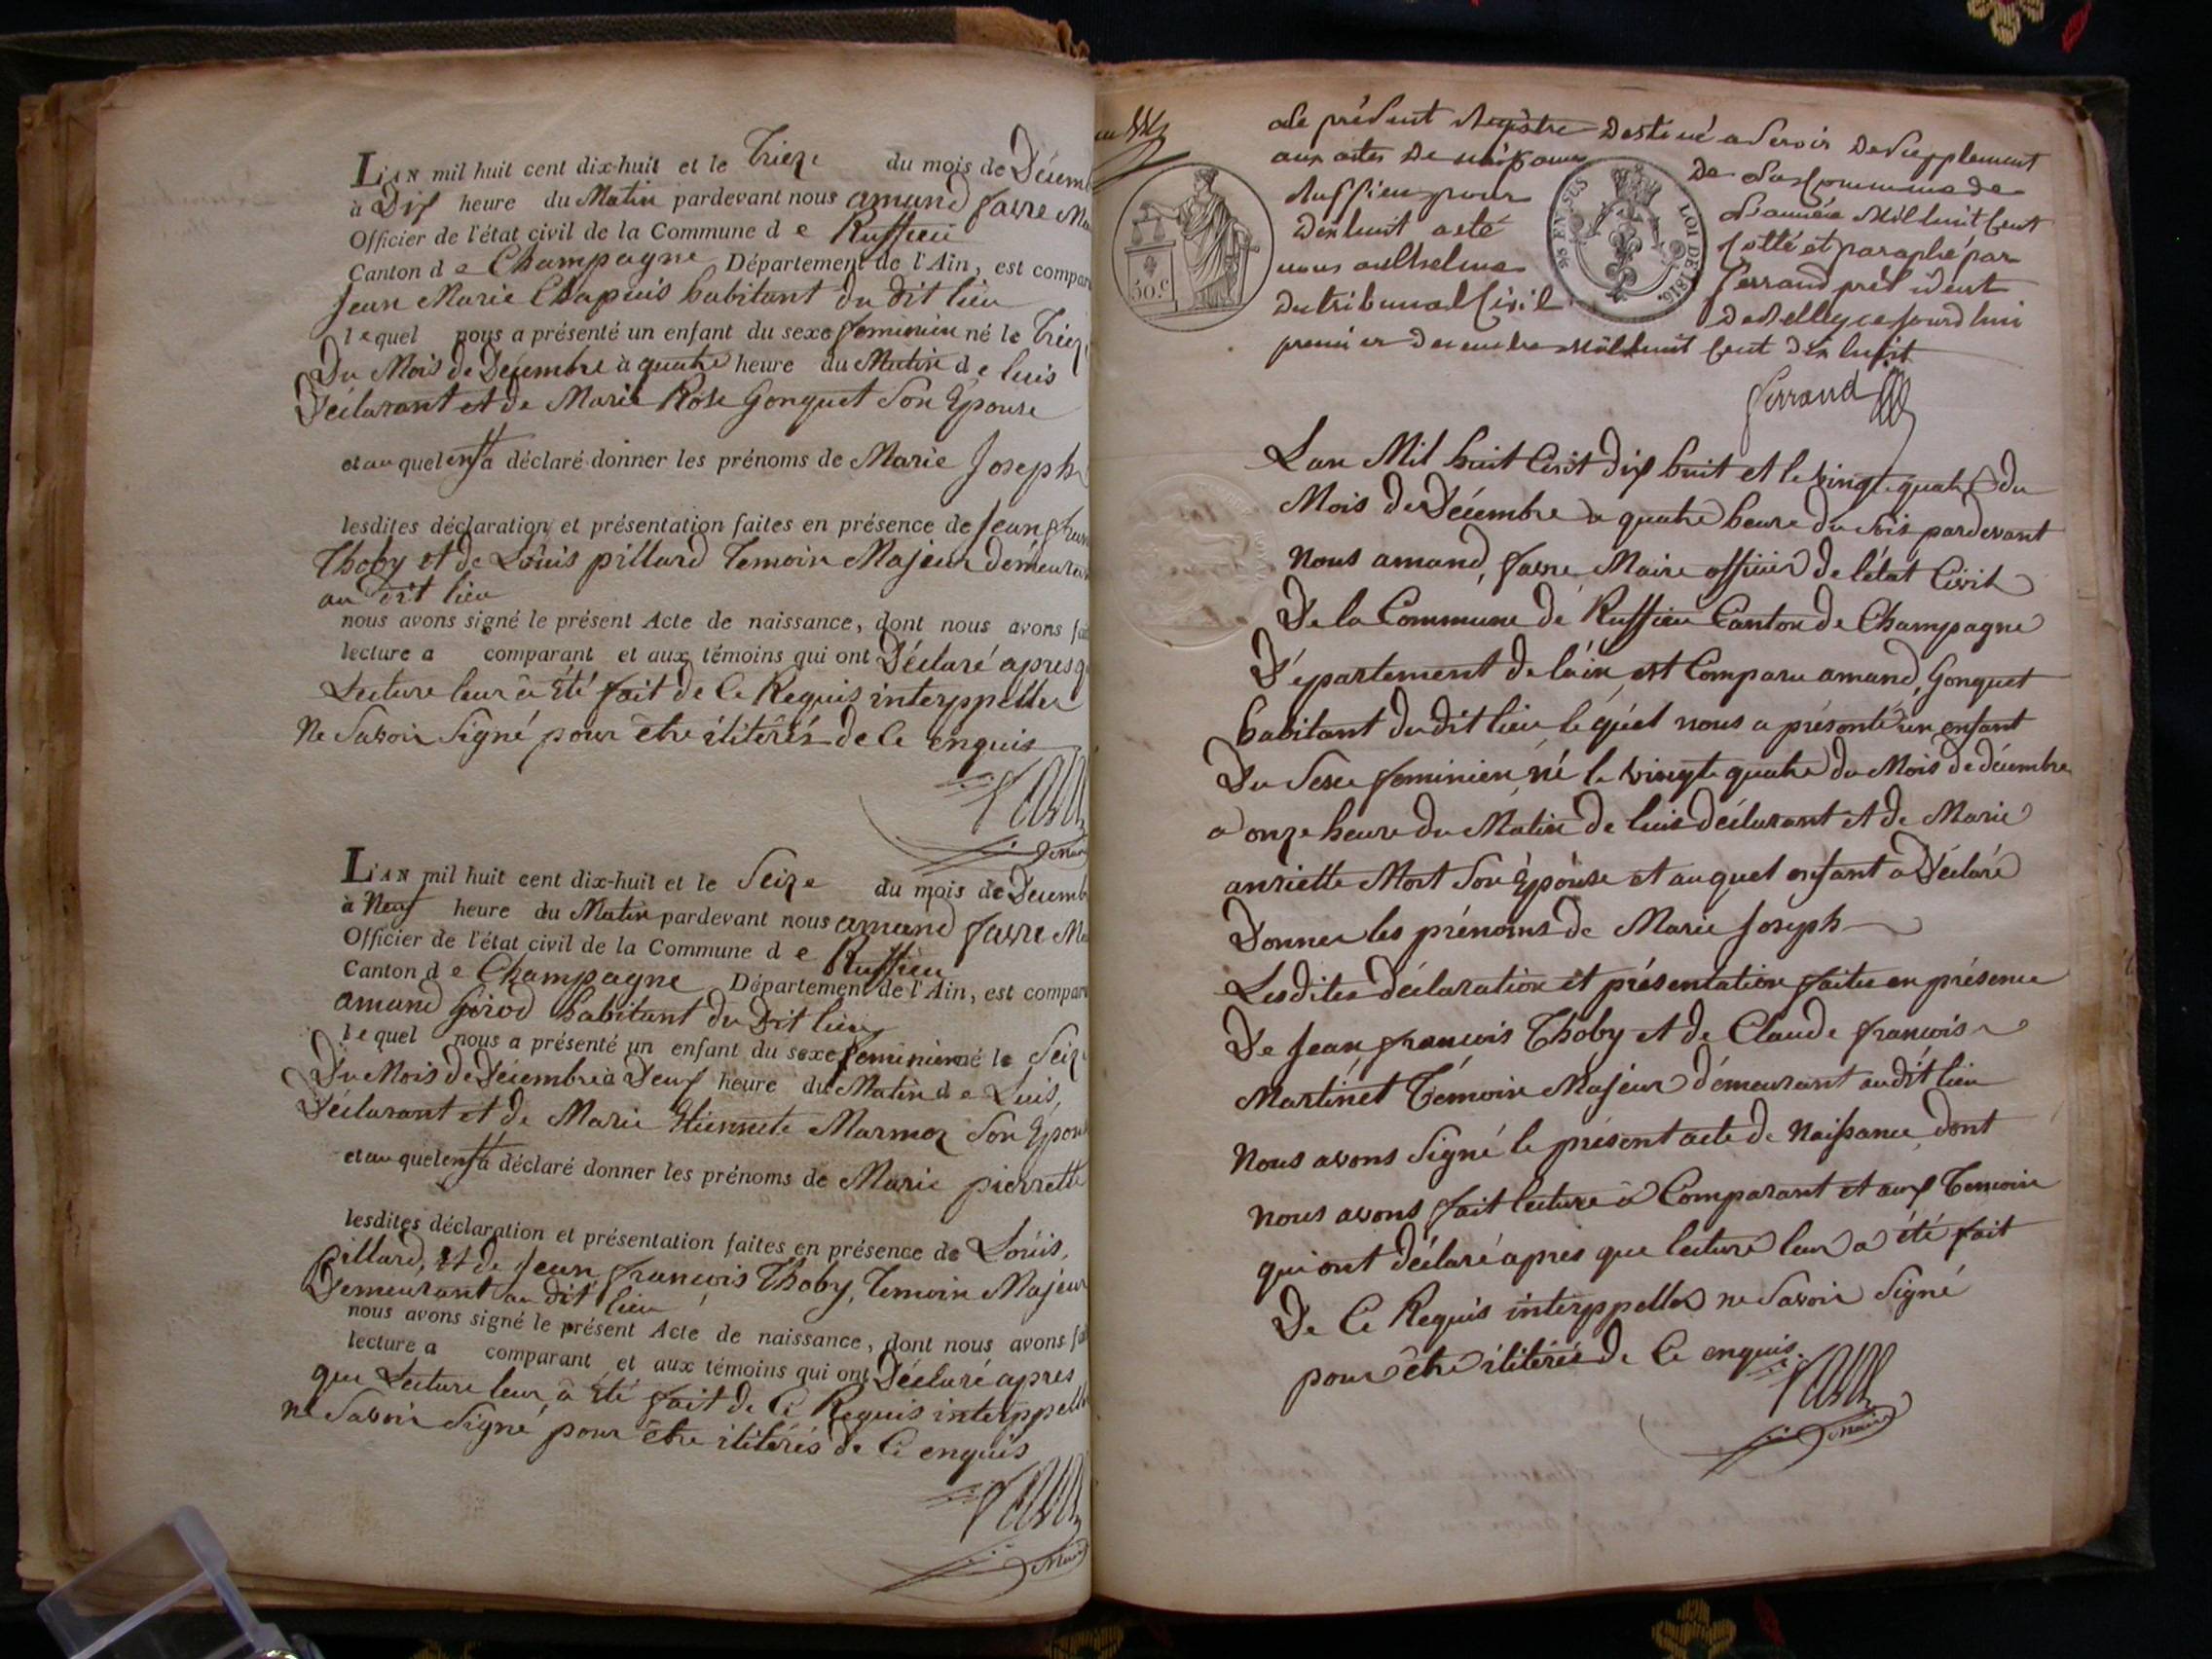 L'AN mil huit cent dix-huit et le Trieze du mois de Décem
à Dix heure du Matin pardevant nous amand favre Ma
Officier de l'état civil de la Commune d e Ruffieu
Canton d e Champagne Département de l'Ain, est compar
Jean Marie Chapuis habitant du dit lieu
lequel nous a présenté un enfant du sexe feminien né le Triez
Du Mois de Décembre à quatre heure du Matin d e luis
Déclarant et de Marie Rose Gonguet Son Épouse
et au quel enft a déclaré donner les prénoms de Marie Joseph
lesdites déclaration et présentation faites en présence de Jean fran
Thoby et de Louis pillard Temoin Majeur démeuran
au dit lieu
nous avons signé le présent Acte de naissance, dont nous avons fai
lecture a comparant et aux témoins qui ont Déclaré apres q
Lecture leur à été fait de Ce Requis interppeller
Ne Savoir Signé pour être ilitérés de Ce enquis
L'AN mil huit cent dix-huit et le Seize du mois de Décemb
à Neuf heure du Matin pardevant nous amand favre Ma
Officier de l'état civil de la Commune d e Ruffieu
Canton d e Champagne Département de l'Ain, est compar
amand Girod habitant du Dit lieu
lequel nous a présenté un enfant du sexe feminien né le Seiz
Du Mois de Décembre à Deux heure du Matin d e Luis,
Déclarant et de Marie Etiennete Marmoz Son Epou
et au quel enft a déclaré donner les prénoms de Marie pierrette
lesdites déclaration et présentation faites en présence de Louis,
pillard, et de Jean françois Thoby, Temoin Majeur
Demeurant au dit lieu
nous avons signé le présent Acte de naissance, dont nous avons fai
lecture a comparant et aux témoins qui ont Déclaré apres
que Lecture leur, à été fait de Ce Requis interppell
ne Savoir Signé pour être ilitérés de Ce enquis
Le présent Registre destiné a Servir de Supplement
aux actes de naissance de La Commune de
Ruffieu pour L'année Mil huit Cent
dix huit a eté Cotté et paraphé par
nous anthelme ferrand président
du tribunal Civil de Belley ce jourd'hui
premier decembre mil huit Cent dix huit
50.C
50 EN SUS LOI DE 1816.
ferrand
L'an Mil huit Cent dix huit et le vingt quatre du
Mois de Décembre a quatre heure du Soir pardevant
Nous amand, favre Maire officier de l'état Civil
De la Commune de Ruffieu Canton de Champagne
Département de l'ain est Comparu amand, Gonguet
habitant du dit lieu le quel nous a présenté un enfant
Du Sexe feminien né le vingt quatre du Mois de décembre
a onze heure du Matin de luis déclarant et de Marie
anriette Mort Son Épouse et au quel enfant a Déclaré
Donner les prénoms de Marie Joseph
Lesdites déclaration et présentation faites en présence
De Jean françois Thoby et de Claude françois
Martinet Témoin Majeur démeurant audit lieu
Nous avons Signé le présent acte de Naissance dont
nous avons fait lecture a Comparant et aux Temoin
qui ont déclaré apres que lecture leur a été fait
De Ce Requis interppeller ne Savoir Signé
pour être ilitérés de Ce enquis.